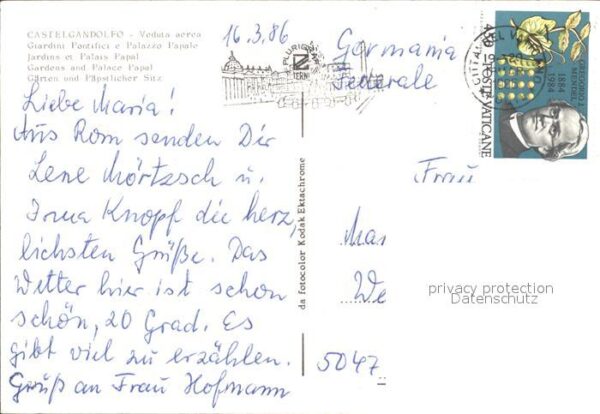 CASTELGANDOLFO - Veduta aerea
Giardini Pontifici e Palazzo Papale
Jardins et Palais Papal
Gardens and Palace Papal
Gärten und Päpstlicher Sitz
16.3.86
Liebe Maria!
Aus Rom senden Dir
Lene Mörtzsch u.
Irma Knopf die herz,
lichsten Grüße. Das
Wetter hier ist schon
schön, 20 Grad. Es
gibt viel zu erzählen.
Gruß an Frau Hofmann
da fotocolor Kodak Ektachrome
Germania
Federale
POSTE VATICANE
1884
1984
Frau
Mar
We
5047
privacy protection
Datenschutz